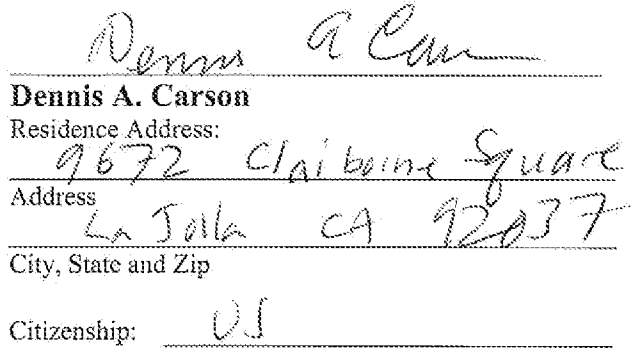 Dennis A Carson
Dennis A. Carson
Residence Address:
9672 Claiborne Square
Address
La Jolla CA 92037
City, State and Zip
Citizenship: US